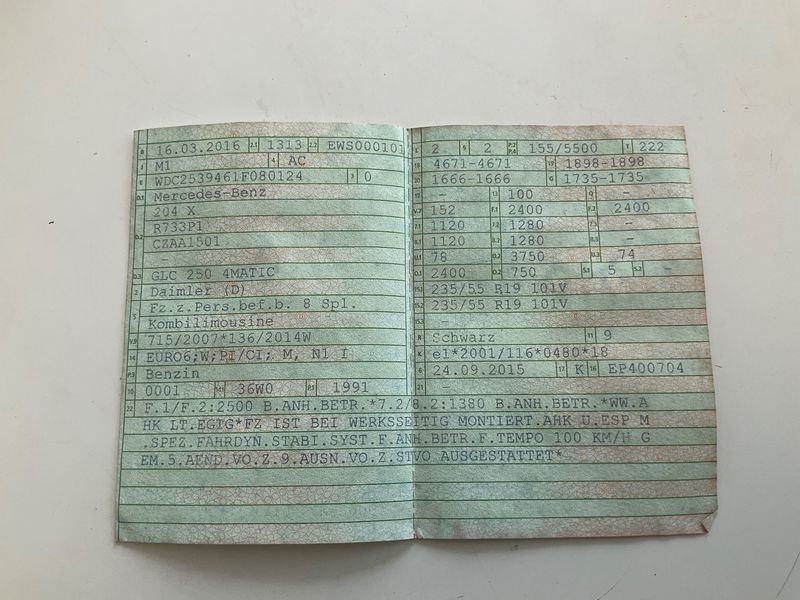 B 16.03.2016 2.1 1313 2.2 EWS000101
J M1 4 AC
E WDC2539461F080124 3 0
D.1 Mercedes-Benz
204 X
D.2 R733P1
CZAA1501
-
D.3 GLC 250 4MATIC
2 Daimler (D)
5 Fz.z.Pers.bef.b. 8 Spl.
Kombilimousine
V.9 715/2007*136/2014W
14 EURO6;W;PI/CI; M, N1 I
P.3 Benzin
10 0001 14.1 36W0 P.1 1991
L 2 9 2 P.2 P.4 155/5500 T 222
18 4671-4671 19 1898-1898
20 1666-1666 G 1735-1735
12 - 13 100 Q -
V.7 152 F.1 2400 F.2 2400
7.1 1120 7.2 1280 7.3 -
8.1 1120 8.2 1280 8.3 -
U.1 78 U.2 3750 U.3 74
O.1 2400 O.2 750 S.1 5 S.2 -
15.1 235/55 R19 101V
15.2 235/55 R19 101V
15.3 -
R Schwarz 11 9
K e1*2001/116*0480*18
6 24.09.2015 17 K 16 EP400704
21 -
22 F.1/F.2:2500 B.ANH.BETR.*7.2/8.2:1380 B.ANH.BETR.*WW.A
HK LT.EGTG*FZ IST BEI WERKSSEITIG MONTIERT.AHK U.ESP M
.SPEZ.FAHRDYN.STABI.SYST.F.ANH.BETR.F.TEMPO 100 KM/H G
EM.5.AEND.VO.Z.9.AUSN.VO.Z.STVO AUSGESTATTET*